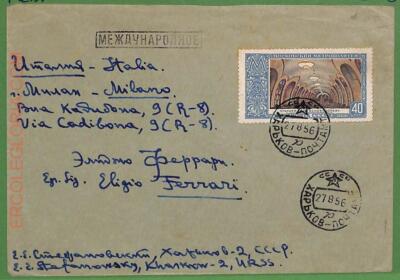 МЕЖДУНАРОДНОЕ
МОСКОВСКИЙ МЕТРОПОЛИТЕН
40
Италия - Italia.
г. Милан - Milano.
Виа Кадибона, 9 (R-8).
Via Cadibona, 9 (R-8).
ХАРЬКОВ-ПОЧТАМТ
27 8 56
Элиджо Феррари.
Eg. Sig. Eligio Ferrari.
ХАРЬКОВ-ПОЧТАМТ
27 8 56
Е.Е. Стефановский, Харьков-2, СССР.
E.E. Stefanowsky, Kharkow-2, URSS.
ERCOLEGLORIA